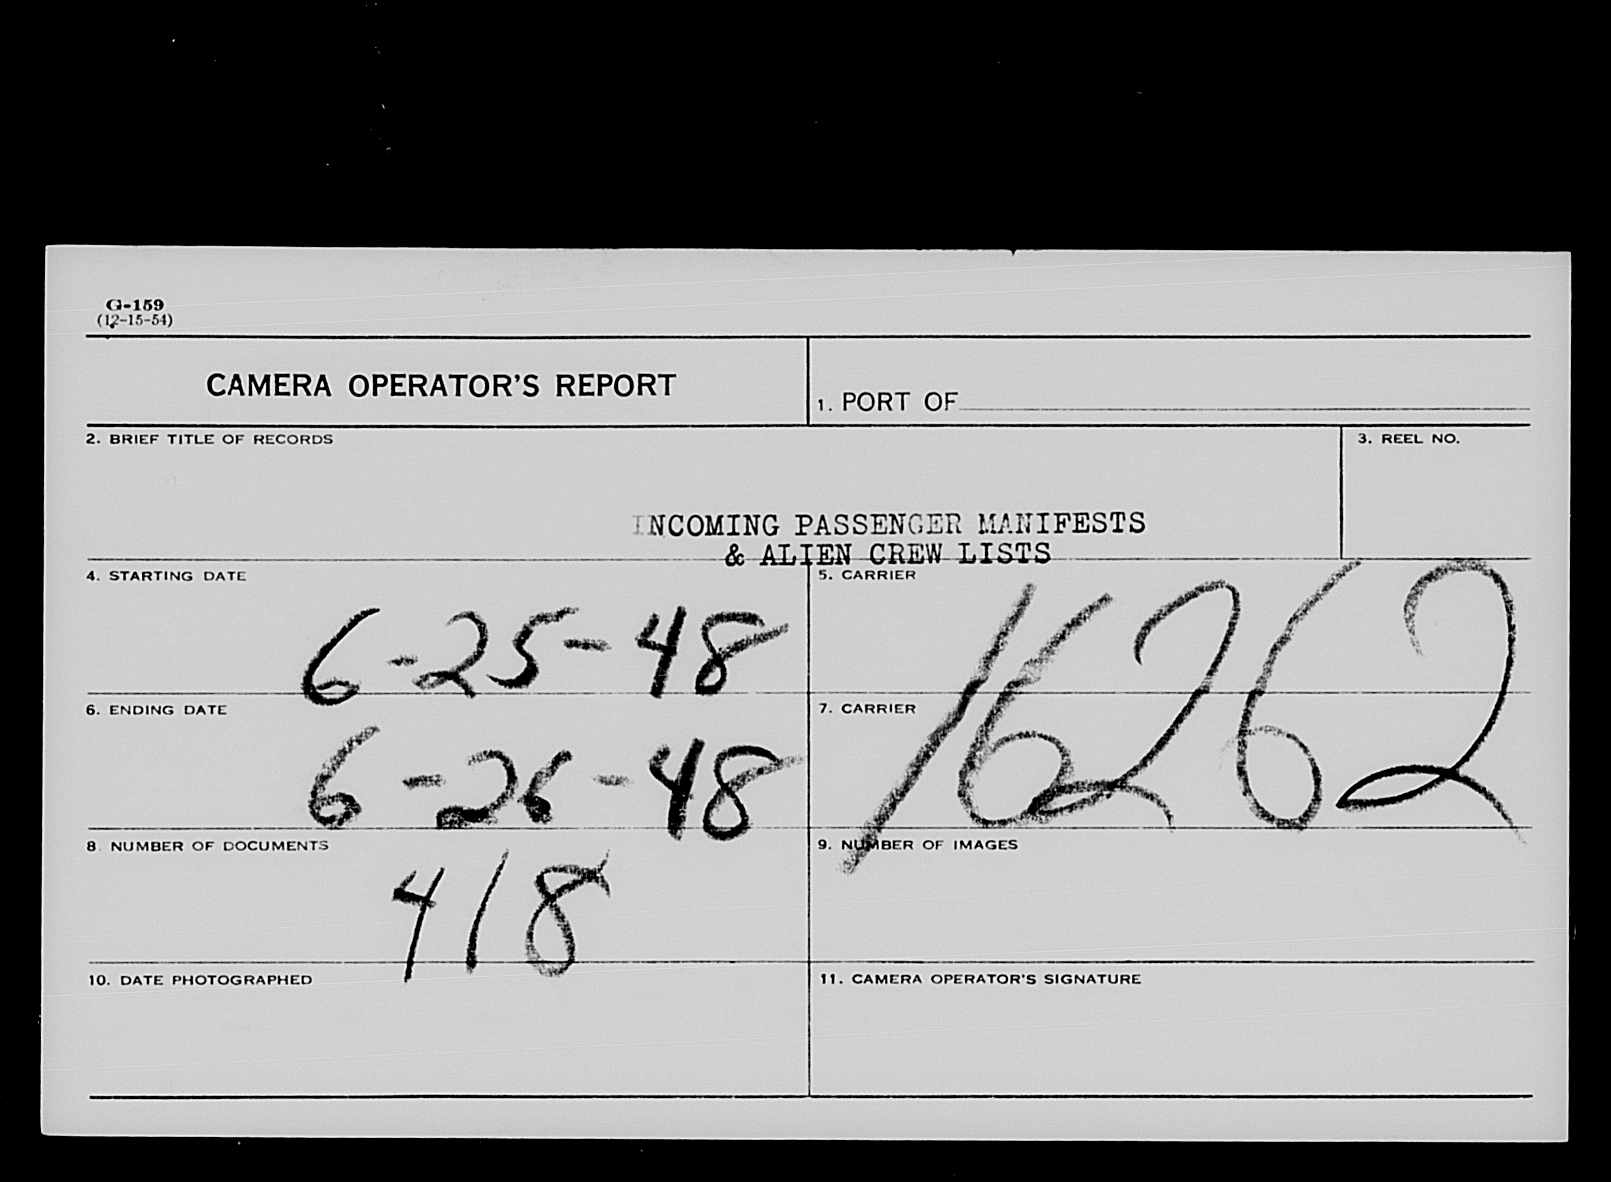 G-159
(12-15-54)
CAMERA OPERATOR'S REPORT
1. PORT OF
2. BRIEF TITLE OF RECORDS
3. REEL NO.
INCOMING PASSENGER MANIFESTS
& ALIEN CREW LISTS
4. STARTING DATE
6-25-48
5. CARRIER
16262
6. ENDING DATE
6-26-48
7. CARRIER
8. NUMBER OF DOCUMENTS
418
9. NUMBER OF IMAGES
10. DATE PHOTOGRAPHED
11. CAMERA OPERATOR'S SIGNATURE